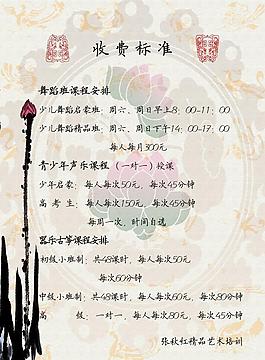 收费标准
舞蹈班课程安排
少儿舞蹈启蒙班 周六、周日早上8：00-11：00
少儿舞蹈精品班 周六、周日下午14：00-17：00
每人每月300元
青少年声乐课程（一对一）授课
少年启蒙：每人每次50元，每次45分钟
高考生：每人每次150元，每次45分钟
每周一次，时间自选
器乐古筝课程安排
初级小班制：共48课时，每人每次50元
每次60分钟
中级小班制：共48课时，每人每次60元，每次80分钟
高级：一对一，每人每次80元，每次45分钟
张秋红精品艺术培训